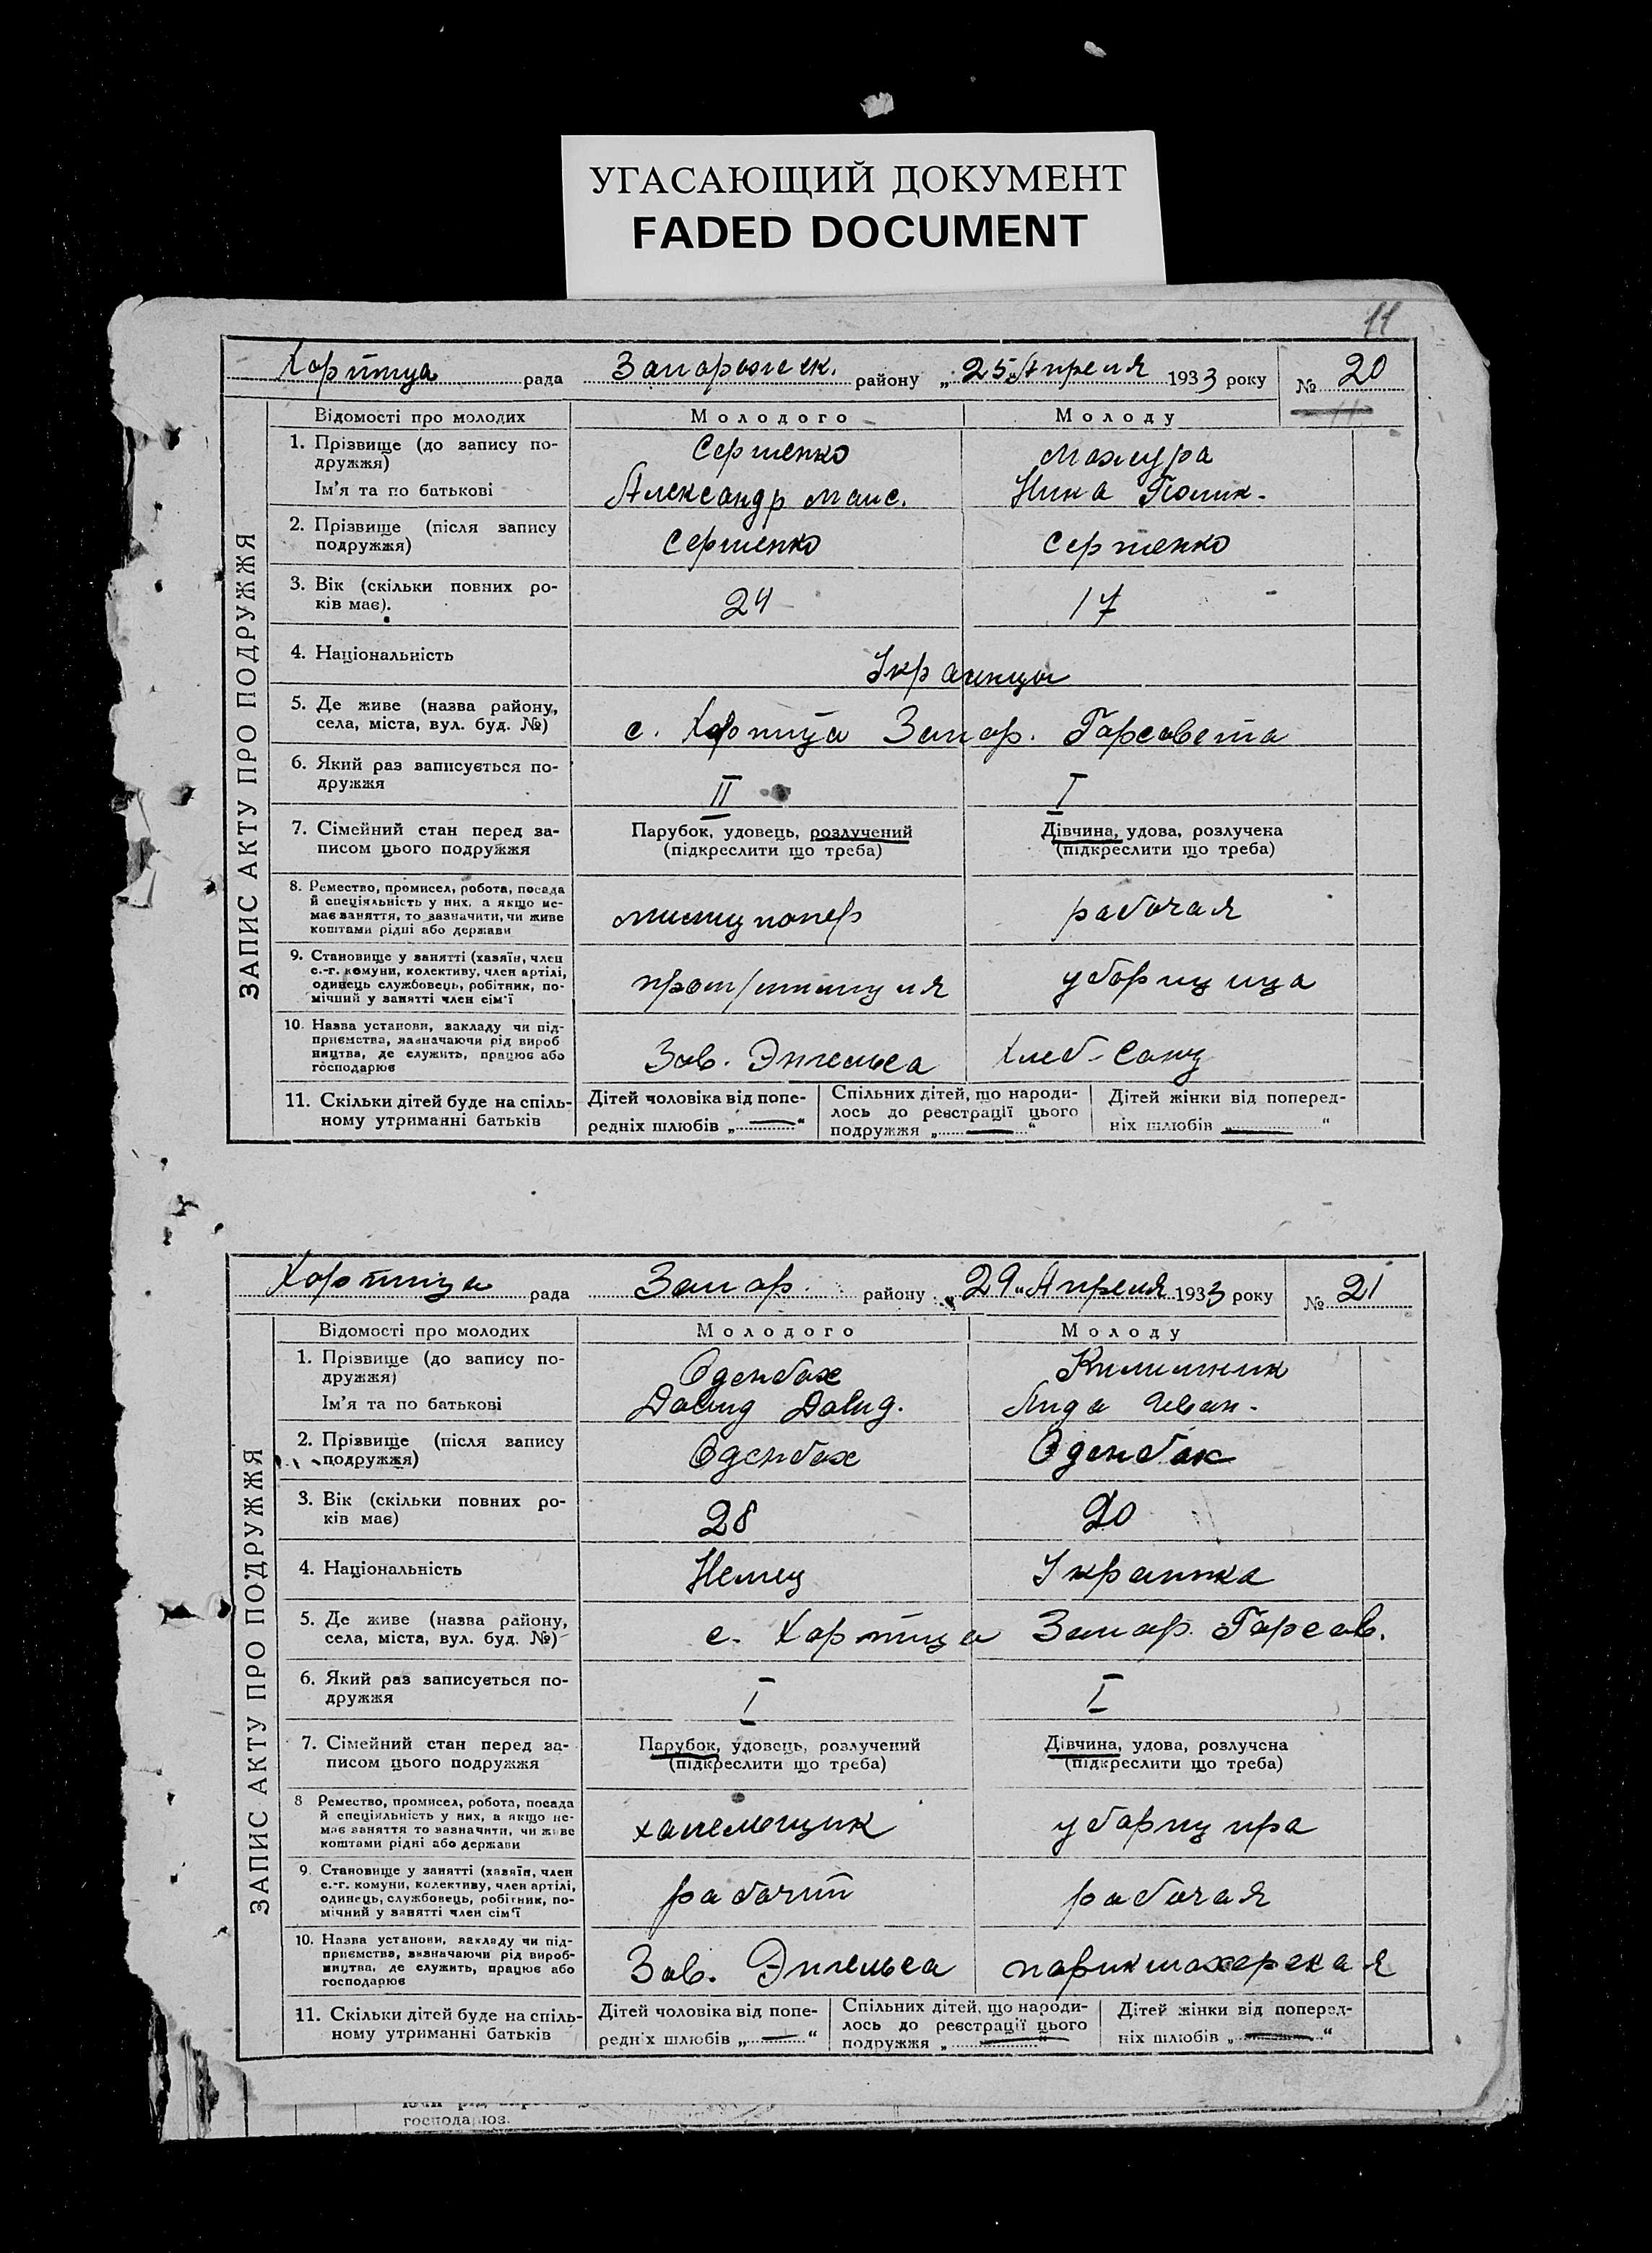 УГАСАЮЩИЙ ДОКУМЕНТ
FADED DOCUMENT
11
Хортица рада Запорожск. району „25“ Апреля 1933 року № 20
Відомості про молодих Молодого Молоду
1. Прізвище (до запису по-
дружжя) Сергиенко
Ім’я та по батькові Александр Нина
2. Прізвище (після запису
подружжя) Сергиенко Сергиенко
3. Вік (скільки повних ро-
ків має). 24 17
4. Національність Украинцы
5. Де живе (назва району,
села, міста, вул. буд. №) с. Хортица Запор. Горсовета
6. Який раз записується по-
дружжя II I
7. Сімейний стан перед за-
писом цього подружжя
Парубок, удовець, розлучений
(підкреслити що треба)
Дівчина, удова, розлучена
(підкреслити що треба)
8. Ремество, промисел, робота, посада
й спеціяльність у них, а якщо не-
має заняття, то зазначити, чи живе
коштами рідні або держави
рабочая
9. Становище у занятті (хазяїн, член
с.-г. комуни, колективу, член артілі,
одинець службовець, робітник, по-
мічний у занятті член сім’ї
уборщица
10. Назва установи, закладу чи під-
приємства, зазначаючи рід вироб
ництва, де служить, працює або
господарює
Зав. Энгельса
11. Скільки дітей буде на спіль-
ному утриманні батьків
Дітей чоловіка від попе-
редніх шлюбів „ — “
Спільних дітей, що народи-
лось до реєстрації цього
подружжя „ — “
Дітей жінки від поперед-
ніх шлюбів „ — “
ЗАПИС АКТУ ПРО ПОДРУЖЖЯ
Хортица рада Запор. району „29“ Апреля 1933 року № 21
Відомості про молодих Молодого Молоду
1. Прізвище (до запису по-
дружжя) Оденбах Килимник
Ім’я та по батькові Давид Давид. Лида Иван.
2. Прізвище (після запису
подружжя) Оденбах Оденбах
3. Вік (скільки повних ро-
ків має) 28 20
4. Національність Немец Украинка
5. Де живе (назва району,
села, міста, вул. буд. №) с. Хортица Запор. Горсов.
6. Який раз записується по-
дружжя I I
7. Сімейний стан перед за-
писом цього подружжя
Парубок, удовець, розлучений
(підкреслити що треба)
Дівчина, удова, розлучена
(підкреслити що треба)
8 Ремество, промисел, робота, посада
й спеціяльність у них, а якщо не-
має заняття то зазначити, чи живе
коштами рідні або держави
уборщица
9. Становище у занятті (хазяїн, член
с.-г. комуни, колективу, член артілі,
одинець, службовець, робітник, по-
мічний у занятті член сім’ї
рабочий рабочая
10. Назва установи, закладу чи під-
приємства, зазначаючи рід вироб-
ництва, де служить, працює або
господарює
Зав. Энгельса парикмахерская
11. Скільки дітей буде на спіль-
ному утриманні батьків
Дітей чоловіка від попе-
редніх шлюбів „ — “
Спільних дітей, що народи-
лось до реєстрації цього
подружжя „ — “
Дітей жінки від поперед-
ніх шлюбів „ — “
ЗАПИС АКТУ ПРО ПОДРУЖЖЯ
господарює.